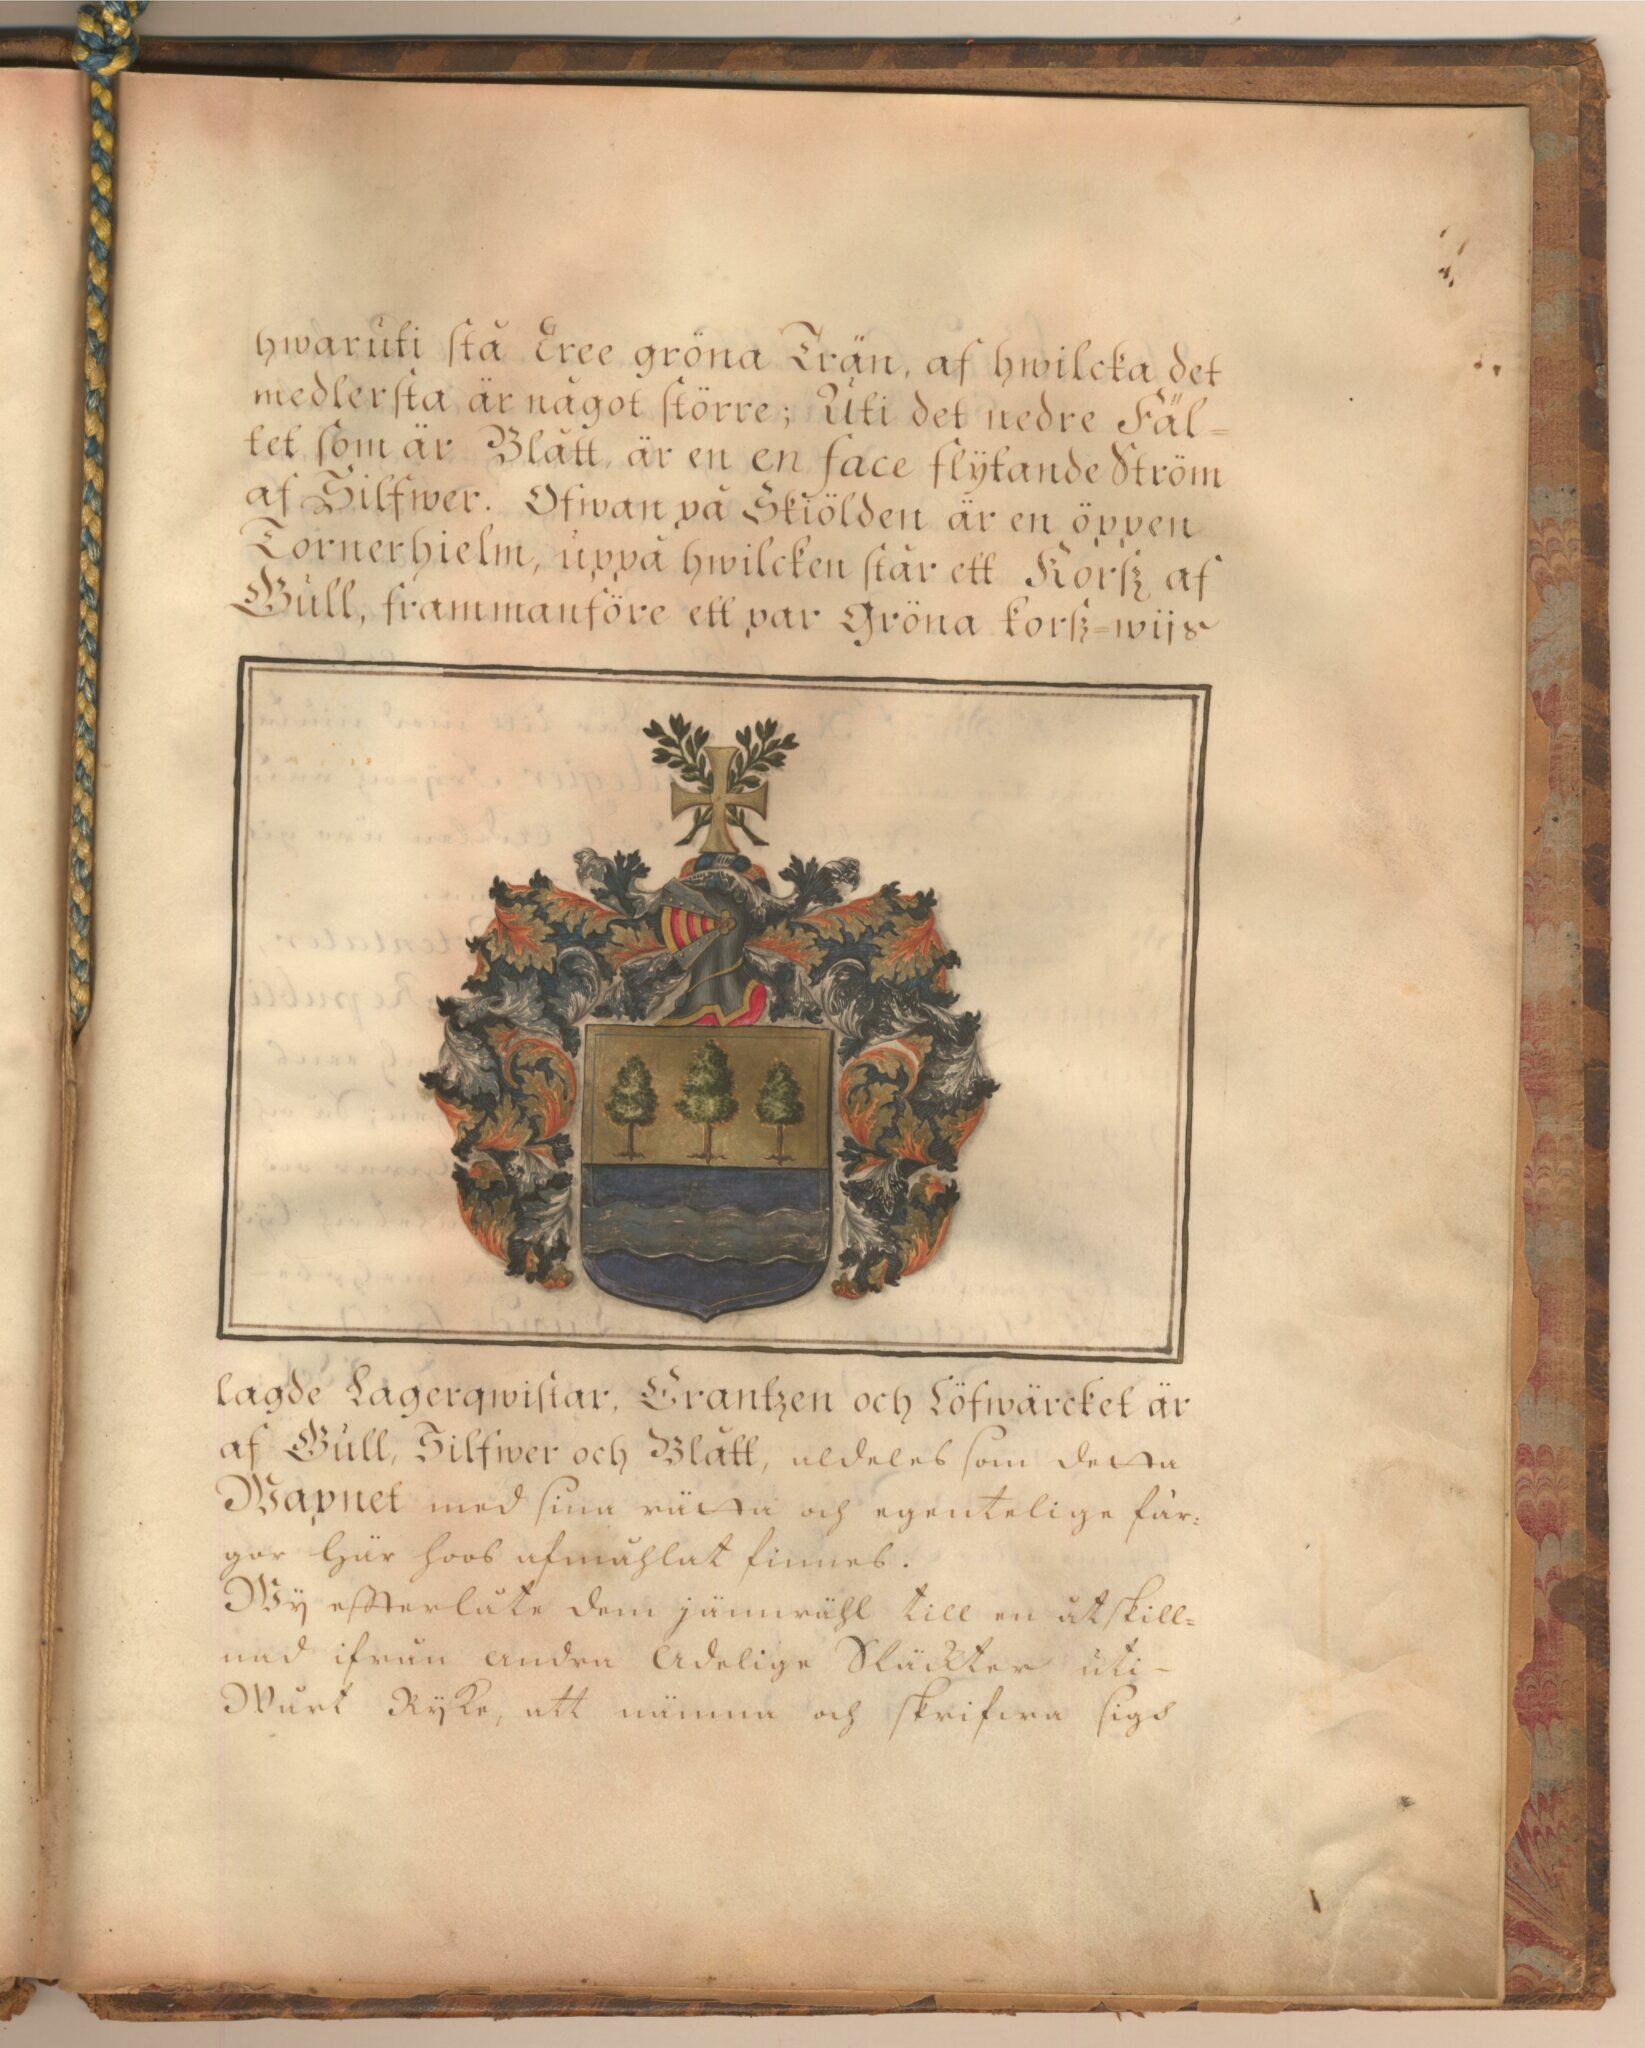 hwaruti stå Tree gröna Trän, af hwilcka det
medlersta är något större; Uti det nedre Fäl=
tet som är Blått, är en en face flÿtande Ström
af Silfwer. Ofwan på Skiölden är en öppen
Tornerhielm, uppå hwilcken står ett Korsz af
Gull, frammanföre ett par Gröna korsz=wijs
lagde Lagerqwistar, Crantzen och Löfwärcket är
af Gull, Silfwer och Blått, aldeles som detta
Wapnet med sina rätta och egentelige fär:
gor här hoos afmåhlat finnes.
Wÿ efterlåte dem jämwähl till en åtskill=
nad ifrån andra Adelige Släckter uti-
Wårt Rÿke, att nämna och skrifwa sigh